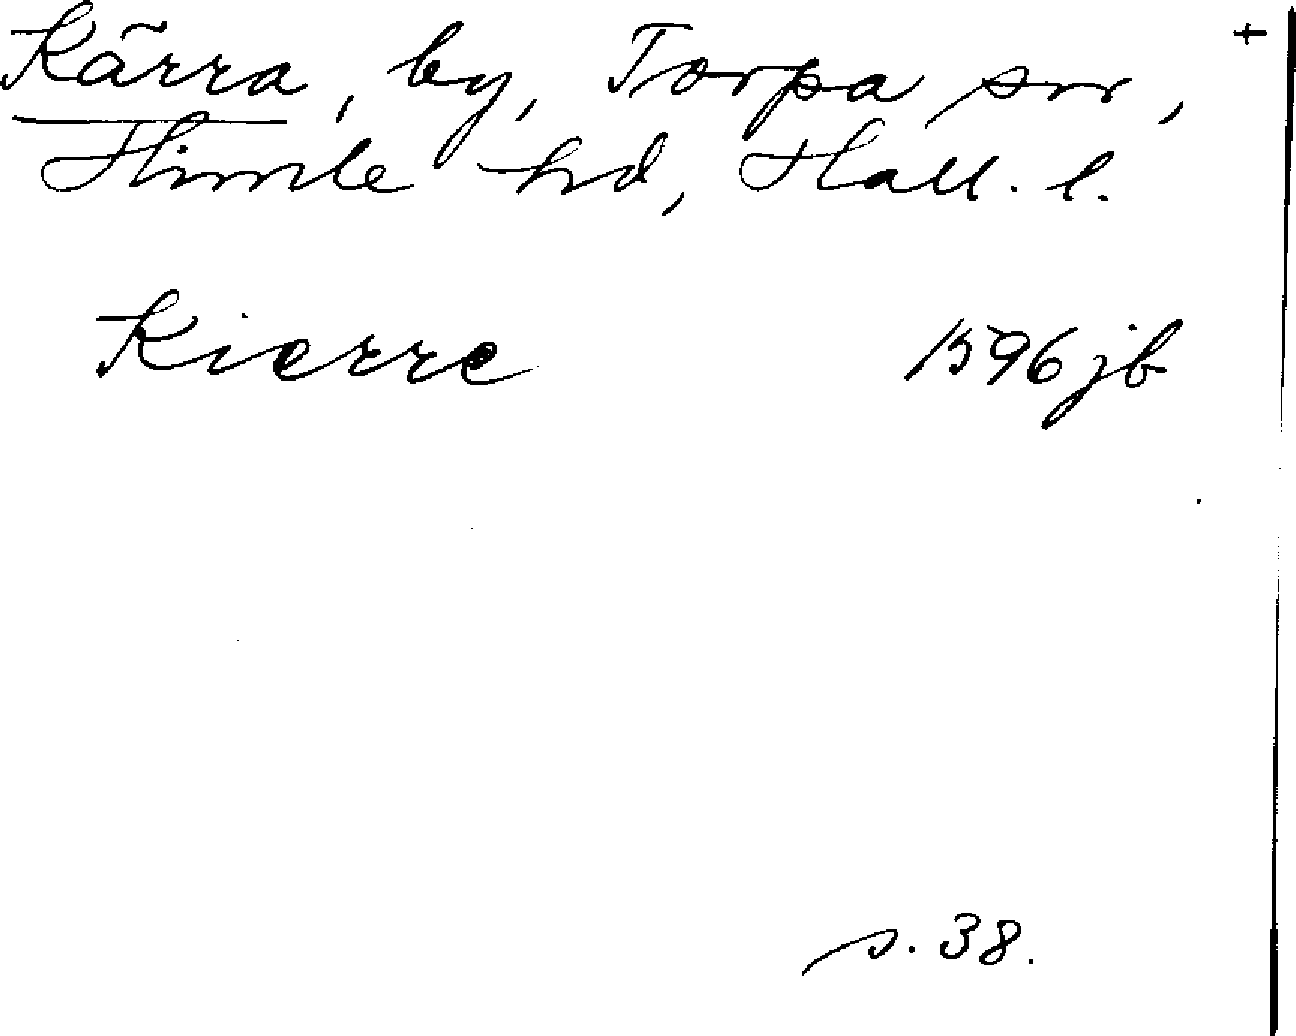 Kärra, by, Torpa sn, +
Himle hd, Hall. l.
Kierre 1596 jb
s. 38.